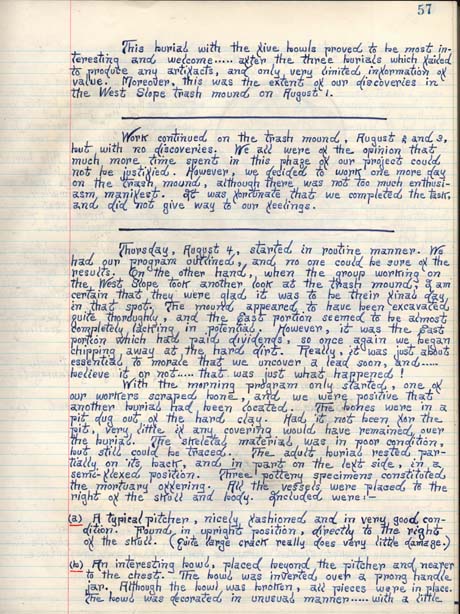 57
This burial with the five bowls proved to be most in-
teresting and welcome..... after the three burials which failed
to produce any artifacts, and only very limited information of
value. Moreover, this was the extent of our discoveries in
the West Slope trash mound on August 1.
Work continued on the trash mound, August 2 and 3,
but with no discoveries. We all were of the opinion that
much more time spent in this phase of our project could
not be justified. However, we decided to work one more day
on the trash mound, although there was not too much enthusi-
asm manifest. It was fortunate that we completed the task,
and did not give way to our feelings.
Thursday, August 4, started in routine manner. We
had our program outlined, and no one could be sure of the
results. On the other hand, when the group working on
the West Slope took another look at the trash mound, I am
certain that they were glad it was to be their final day
in that spot. The mound appeared to have been excavated
quite thoroughly, and the East portion seemed to be almost
completely lacking in potential. However, it was the East
portion which had paid dividends, so once again we began
chipping away at the hard dirt. Really, it was just about
essential to morale that we uncover a lead soon, and.....
believe it or not..... that was just what happened!
With the morning program only started, one of
our workers scraped bone, and we were positive that
another burial had been located. The bones were in a
pit dug out of the hard clay. Had it not been for the
pit, very little if any covering would have remained over
the burial. The skeletal material was in poor condition,
but still could be traced. The adult burial rested par-
tially on its back, and in part on the left side, in a
semi-flexed position. Three pottery specimens constituted
the mortuary offering. All the vessels were placed to the
right of the skull and body. Included were:-
(a) A typical pitcher, nicely fashioned and in very good con-
dition. Found in upright position, directly to the right
of the skull. (Quite large crack really does very little damage.)
(b) An interesting bowl, placed beyond the pitcher and nearer
to the chest. The bowl was inverted over a prong handle
jar. Although the bowl was broken, all pieces were in place.
The bowl was decorated in unusual manner..... with a little